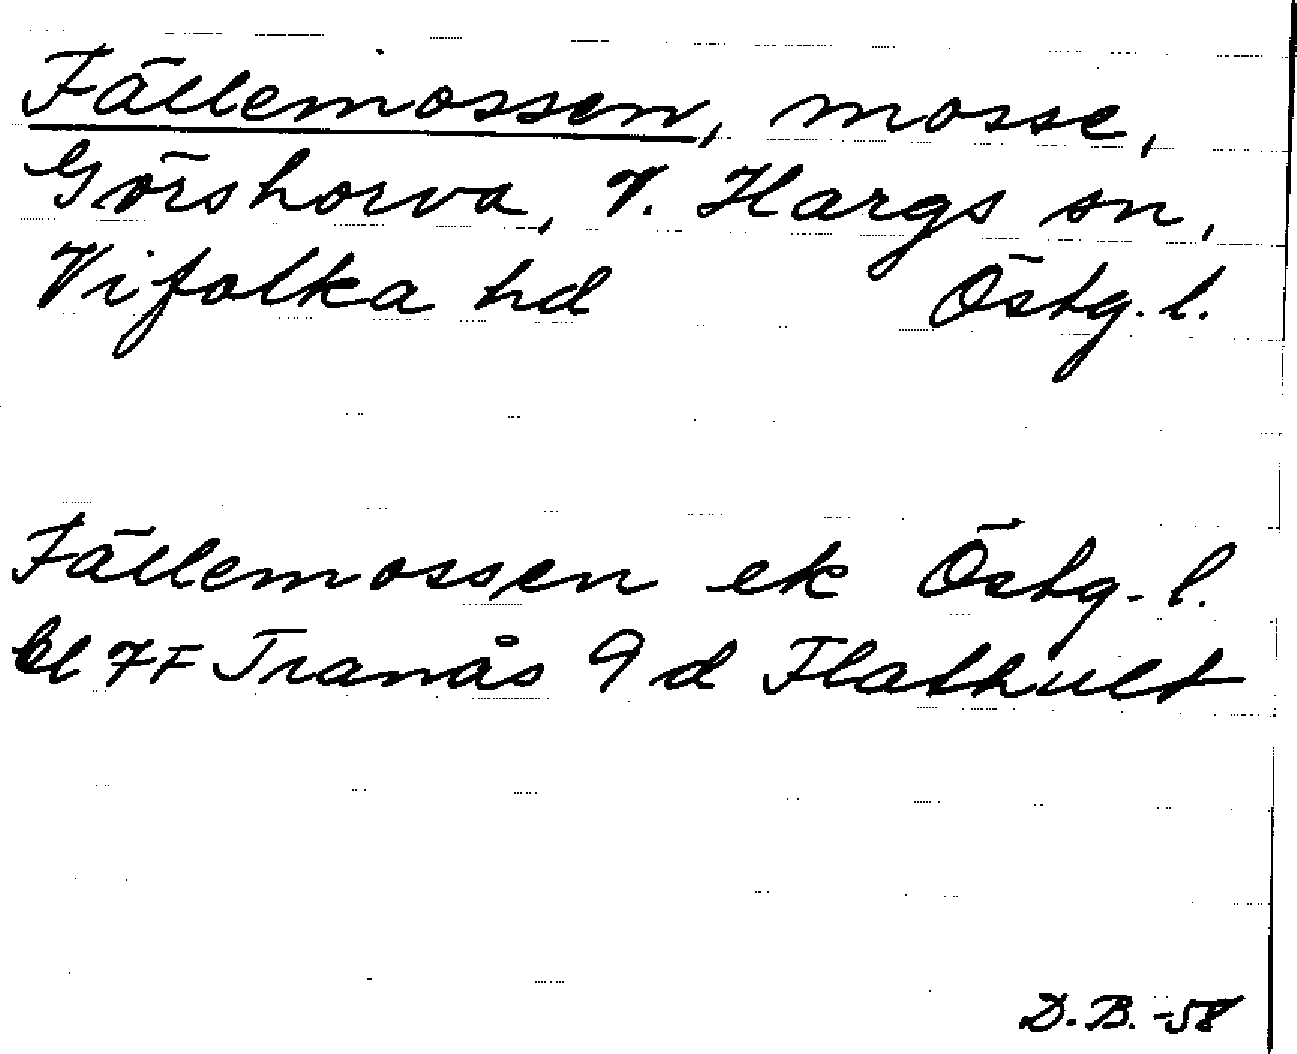 Fällemossen, mosse,
Görshorva, V. Hargs sn,
Vifolka hd Östg. l.
Fällemossen ek Östg. l.
bl 7F Tranås 9 d Flathult
D. B. -58